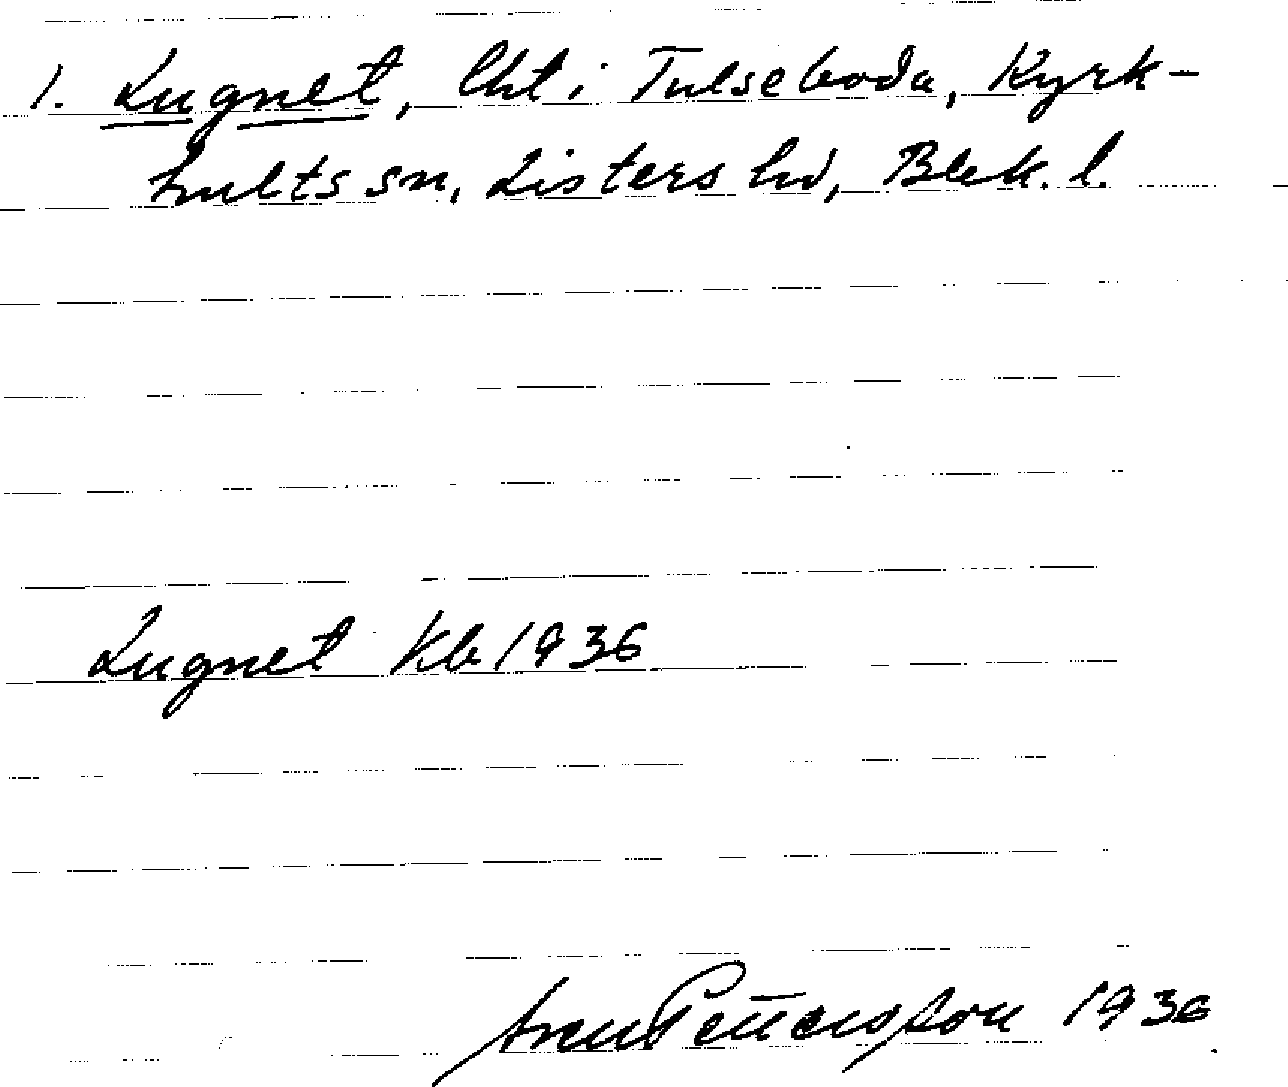 1. Lugnet, lht i Tulseboda, Kyrk-
hults sn, Listers hd, Blek. l.
Lugnet Kb 1936
Pettersson 1936